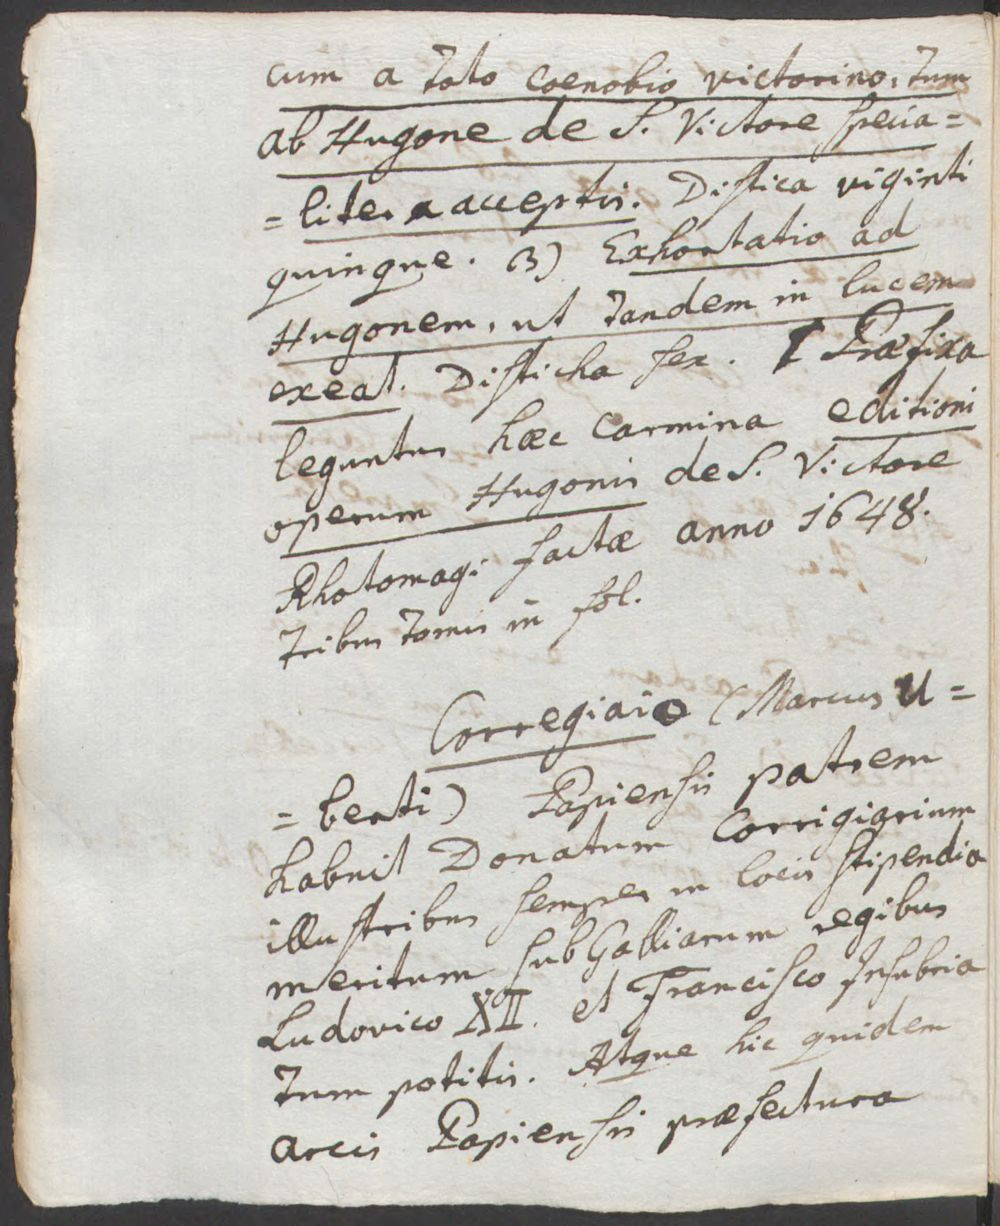 cum a toto coenobio victorino, tum
ab Hugone de S. Victore specia=
=liter acceptis. Distica viginti
quinque. 3) Exhortatio ad
Hugonem, ut tandem in lucem
exeat. Disticha sex. Præfixa
leguntur hæc carmina editioni
operum Hugonis de S. Victore
Rhotomagi factæ anno 1648.
tribus tomis in fol.
Corregiaio (Marcus U=
=berti) Papiensis patrem
habuit Donatum Corrigiarium
illustribus semper in locis stipendia
meritum sub Galliarum regibus
Ludovico XII. et Francisco Insubria
tum potitis. Atque hic quidem
arcis Papiensis præfectura